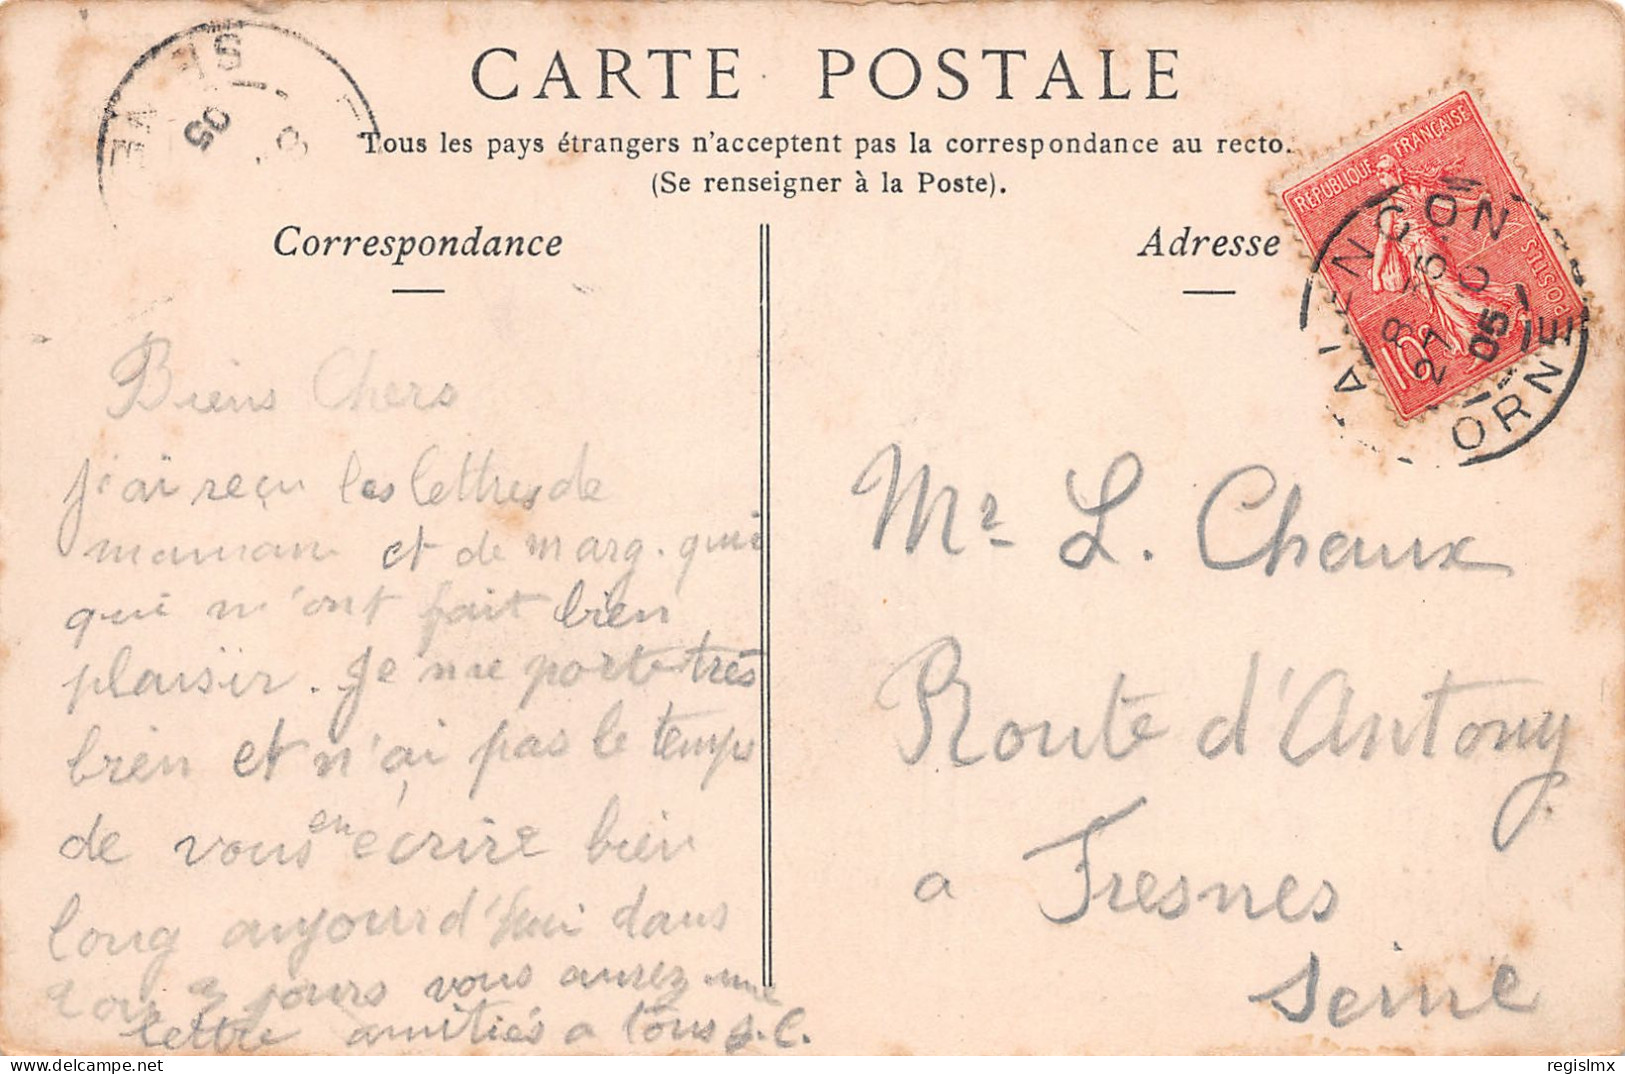 CARTE POSTALE
Tous les pays étrangers n'acceptent pas la correspondance au recto.
(Se renseigner à la Poste).
Correspondance
Adresse
RÉPUBLIQUE FRANÇAISE
POSTES
10c
ALENCON
8
27
05
ORNE
SE
05
Biens Chers
j'ai reçu les lettres de
maman et de marg. qui
qui m'ont fait bien
plaisir. Je me porte très
bien et n'ai pas le temps
de vous en écrire bien
long aujourd'hui dans
2 ou 3 jours vous aurez une
lettre amitiés a tous J.C.
Mr L. Chaux
Route d'Antony
a Fresnes
Seine
regislmx